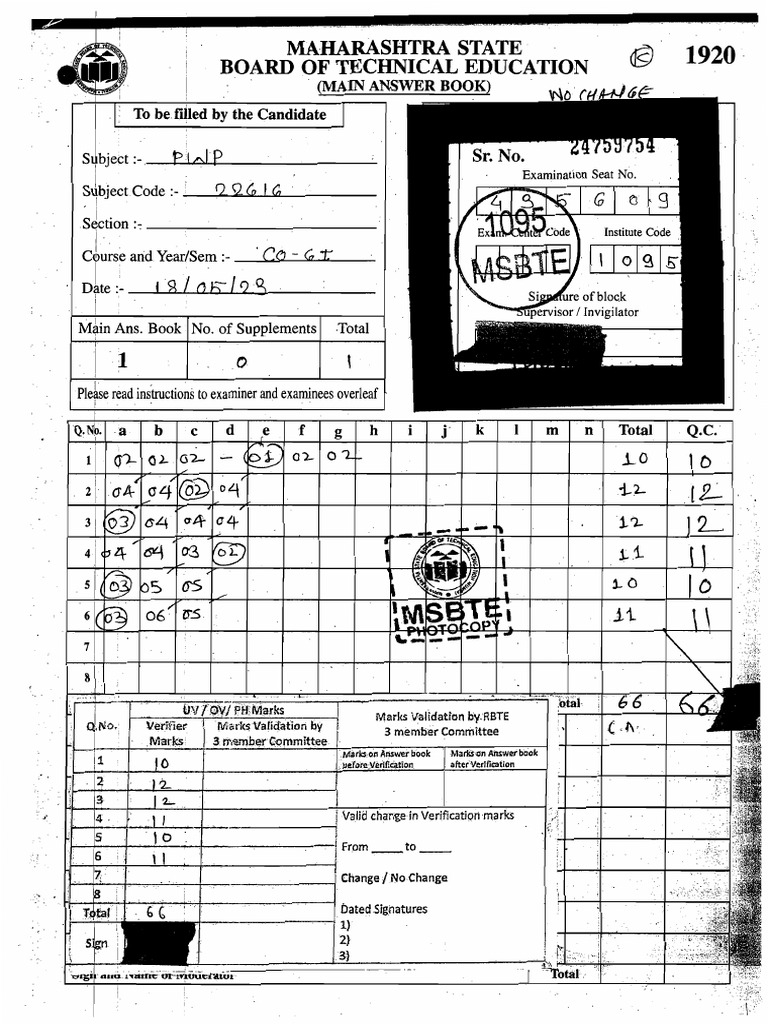 MAHARASHTRA STATE
BOARD OF TECHNICAL EDUCATION
(MAIN ANSWER BOOK)
1920
NO CHANGE
To be filled by the Candidate
Subject :- PWP
Subject Code :- 22616
Section :-
Course and Year/Sem :- CO-6I
Date :- 18/05/23
Main Ans. Book No. of Supplements Total
1 0 1
Please read instructions to examiner and examinees overleaf
Sr. No. 24759754
Examination Seat No.
495609
Exam Center Code Institute Code
1095
1095
MSBTE
Signature of block
Supervisor / Invigilator
Q. No. a b c d e f g h i j k l m n Total Q.C.
1 02 02 02 – 01 02 02 10 10
2 04 04 02 04 12 12
3 03 04 04 04 12 12
4 04 04 03 02 11 11
5 03 05 05 10 10
6 03 06 05 11 11
7
8
MSBTE
PHOTOCOPY
otal 66 66
UV / OV/ PH Marks
Q.No. Verifier Marks Marks Validation by 3 member Committee
1 10
2 12
3 12
4 11
5 10
6 11
7
8
Total 66
Sign
Marks Validation by RBTE
3 member Committee
Marks on Answer book before Verification Marks on Answer book after Verification
Valid change in Verification marks
From _____ to _____
Change / No Change
Dated Signatures
1)
2)
3)
Sign and Name of Moderator Total